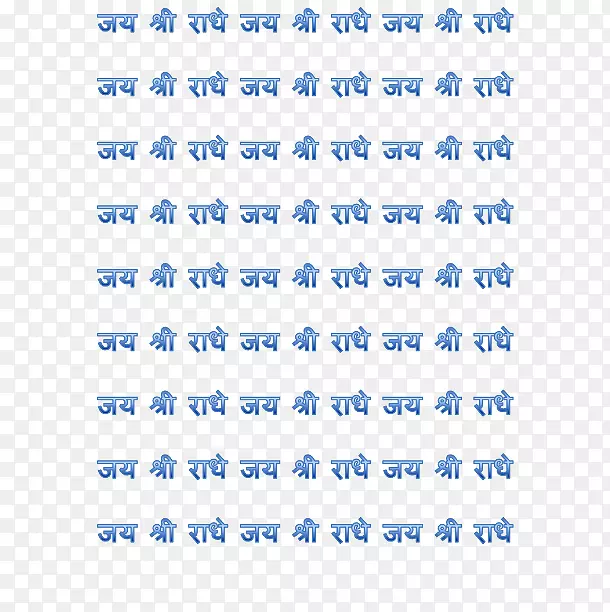 जय श्री राधे जय श्री राधे जय श्री राधे
जय श्री राधे जय श्री राधे जय श्री राधे
जय श्री राधे जय श्री राधे जय श्री राधे
जय श्री राधे जय श्री राधे जय श्री राधे
जय श्री राधे जय श्री राधे जय श्री राधे
जय श्री राधे जय श्री राधे जय श्री राधे
जय श्री राधे जय श्री राधे जय श्री राधे
जय श्री राधे जय श्री राधे जय श्री राधे
जय श्री राधे जय श्री राधे जय श्री राधे